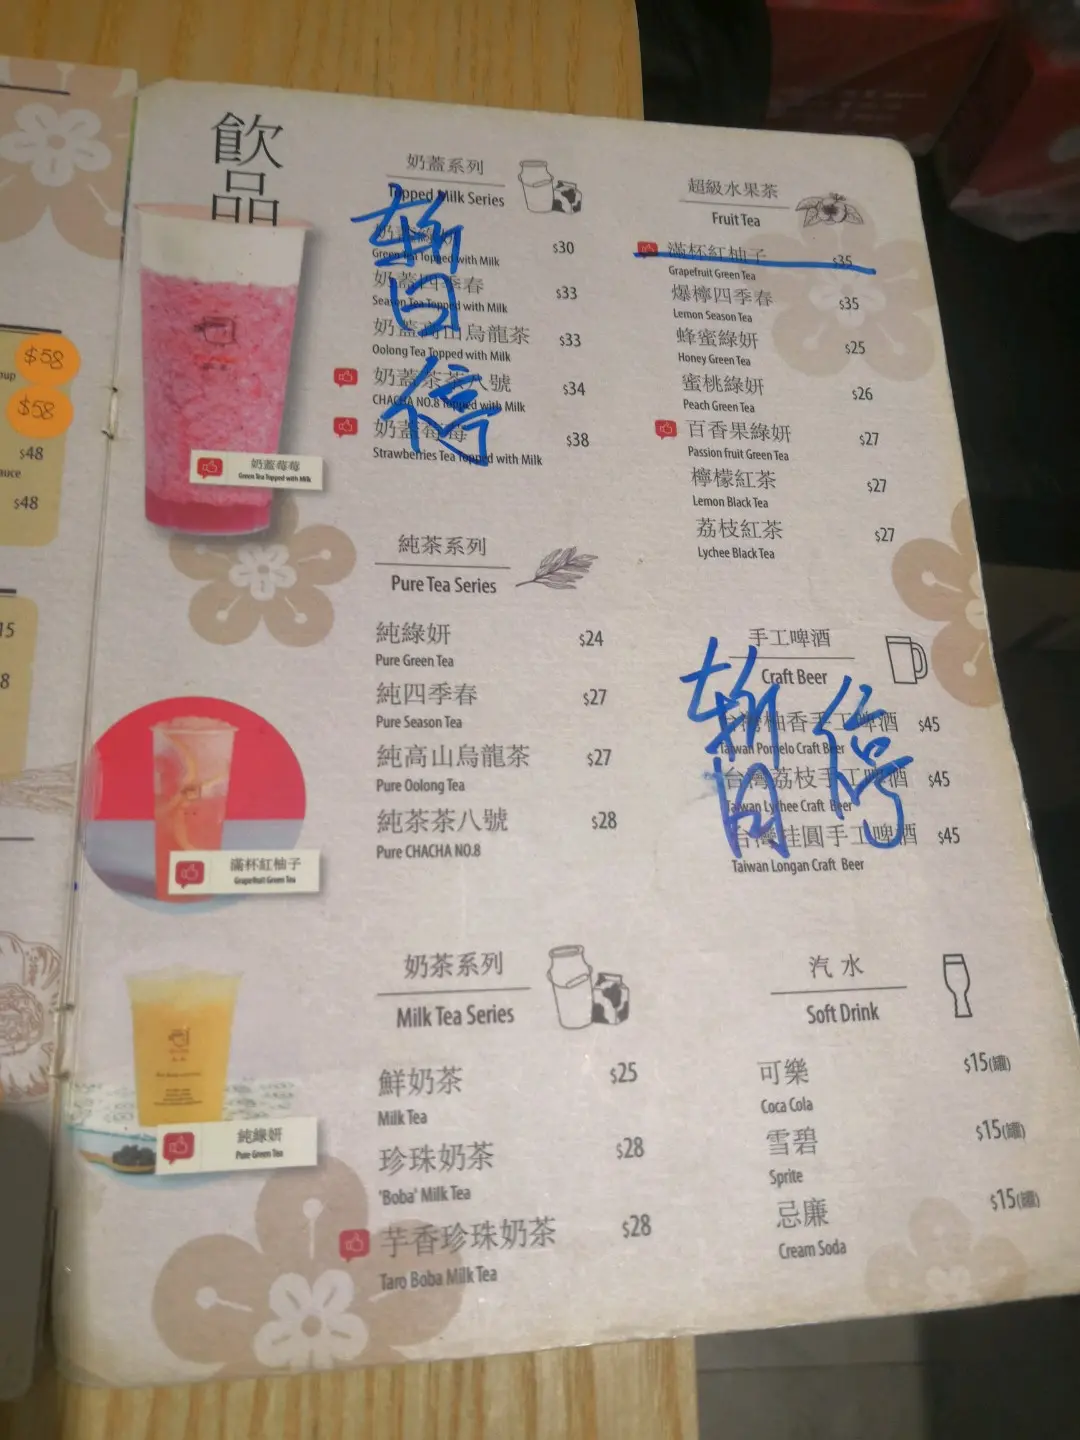 飲品
奶蓋系列
Topped Milk Series
暫停
$30
Green Tea Topped with Milk
奶蓋四季春 $33
Season Tea Topped with Milk
奶蓋高山烏龍茶 $33
Oolong Tea Topped with Milk
奶蓋茶茶八號 $34
CHACHA NO.8 Topped with Milk
奶蓋莓莓 $38
Strawberries Tea Topped with Milk
奶蓋莓莓
Green Tea Topped with Milk
純茶系列
Pure Tea Series
純綠妍 $24
Pure Green Tea
純四季春 $27
Pure Season Tea
純高山烏龍茶 $27
Pure Oolong Tea
純茶茶八號 $28
Pure CHACHA NO.8
滿杯紅柚子
Grapefruit Green Tea
奶茶系列
Milk Tea Series
鮮奶茶 $25
Milk Tea
珍珠奶茶 $28
'Boba' Milk Tea
芋香珍珠奶茶 $28
Taro Boba Milk Tea
純綠妍
Pure Green Tea
超級水果茶
Fruit Tea
滿杯紅柚子 $35
Grapefruit Green Tea
爆檸四季春 $35
Lemon Season Tea
蜂蜜綠妍 $25
Honey Green Tea
蜜桃綠妍 $26
Peach Green Tea
百香果綠妍 $27
Passion fruit Green Tea
檸檬紅茶 $27
Lemon Black Tea
荔枝紅茶 $27
Lychee Black Tea
手工啤酒
Craft Beer
暫停
台灣柚香手工啤酒 $45
Taiwan Pomelo Craft Beer
台灣荔枝手工啤酒 $45
Taiwan Lychee Craft Beer
台灣桂圓手工啤酒 $45
Taiwan Longan Craft Beer
汽水
Soft Drink
可樂 $15(罐)
Coca Cola
雪碧 $15(罐)
Sprite
忌廉 $15(罐)
Cream Soda
$58
$58
$48
$48